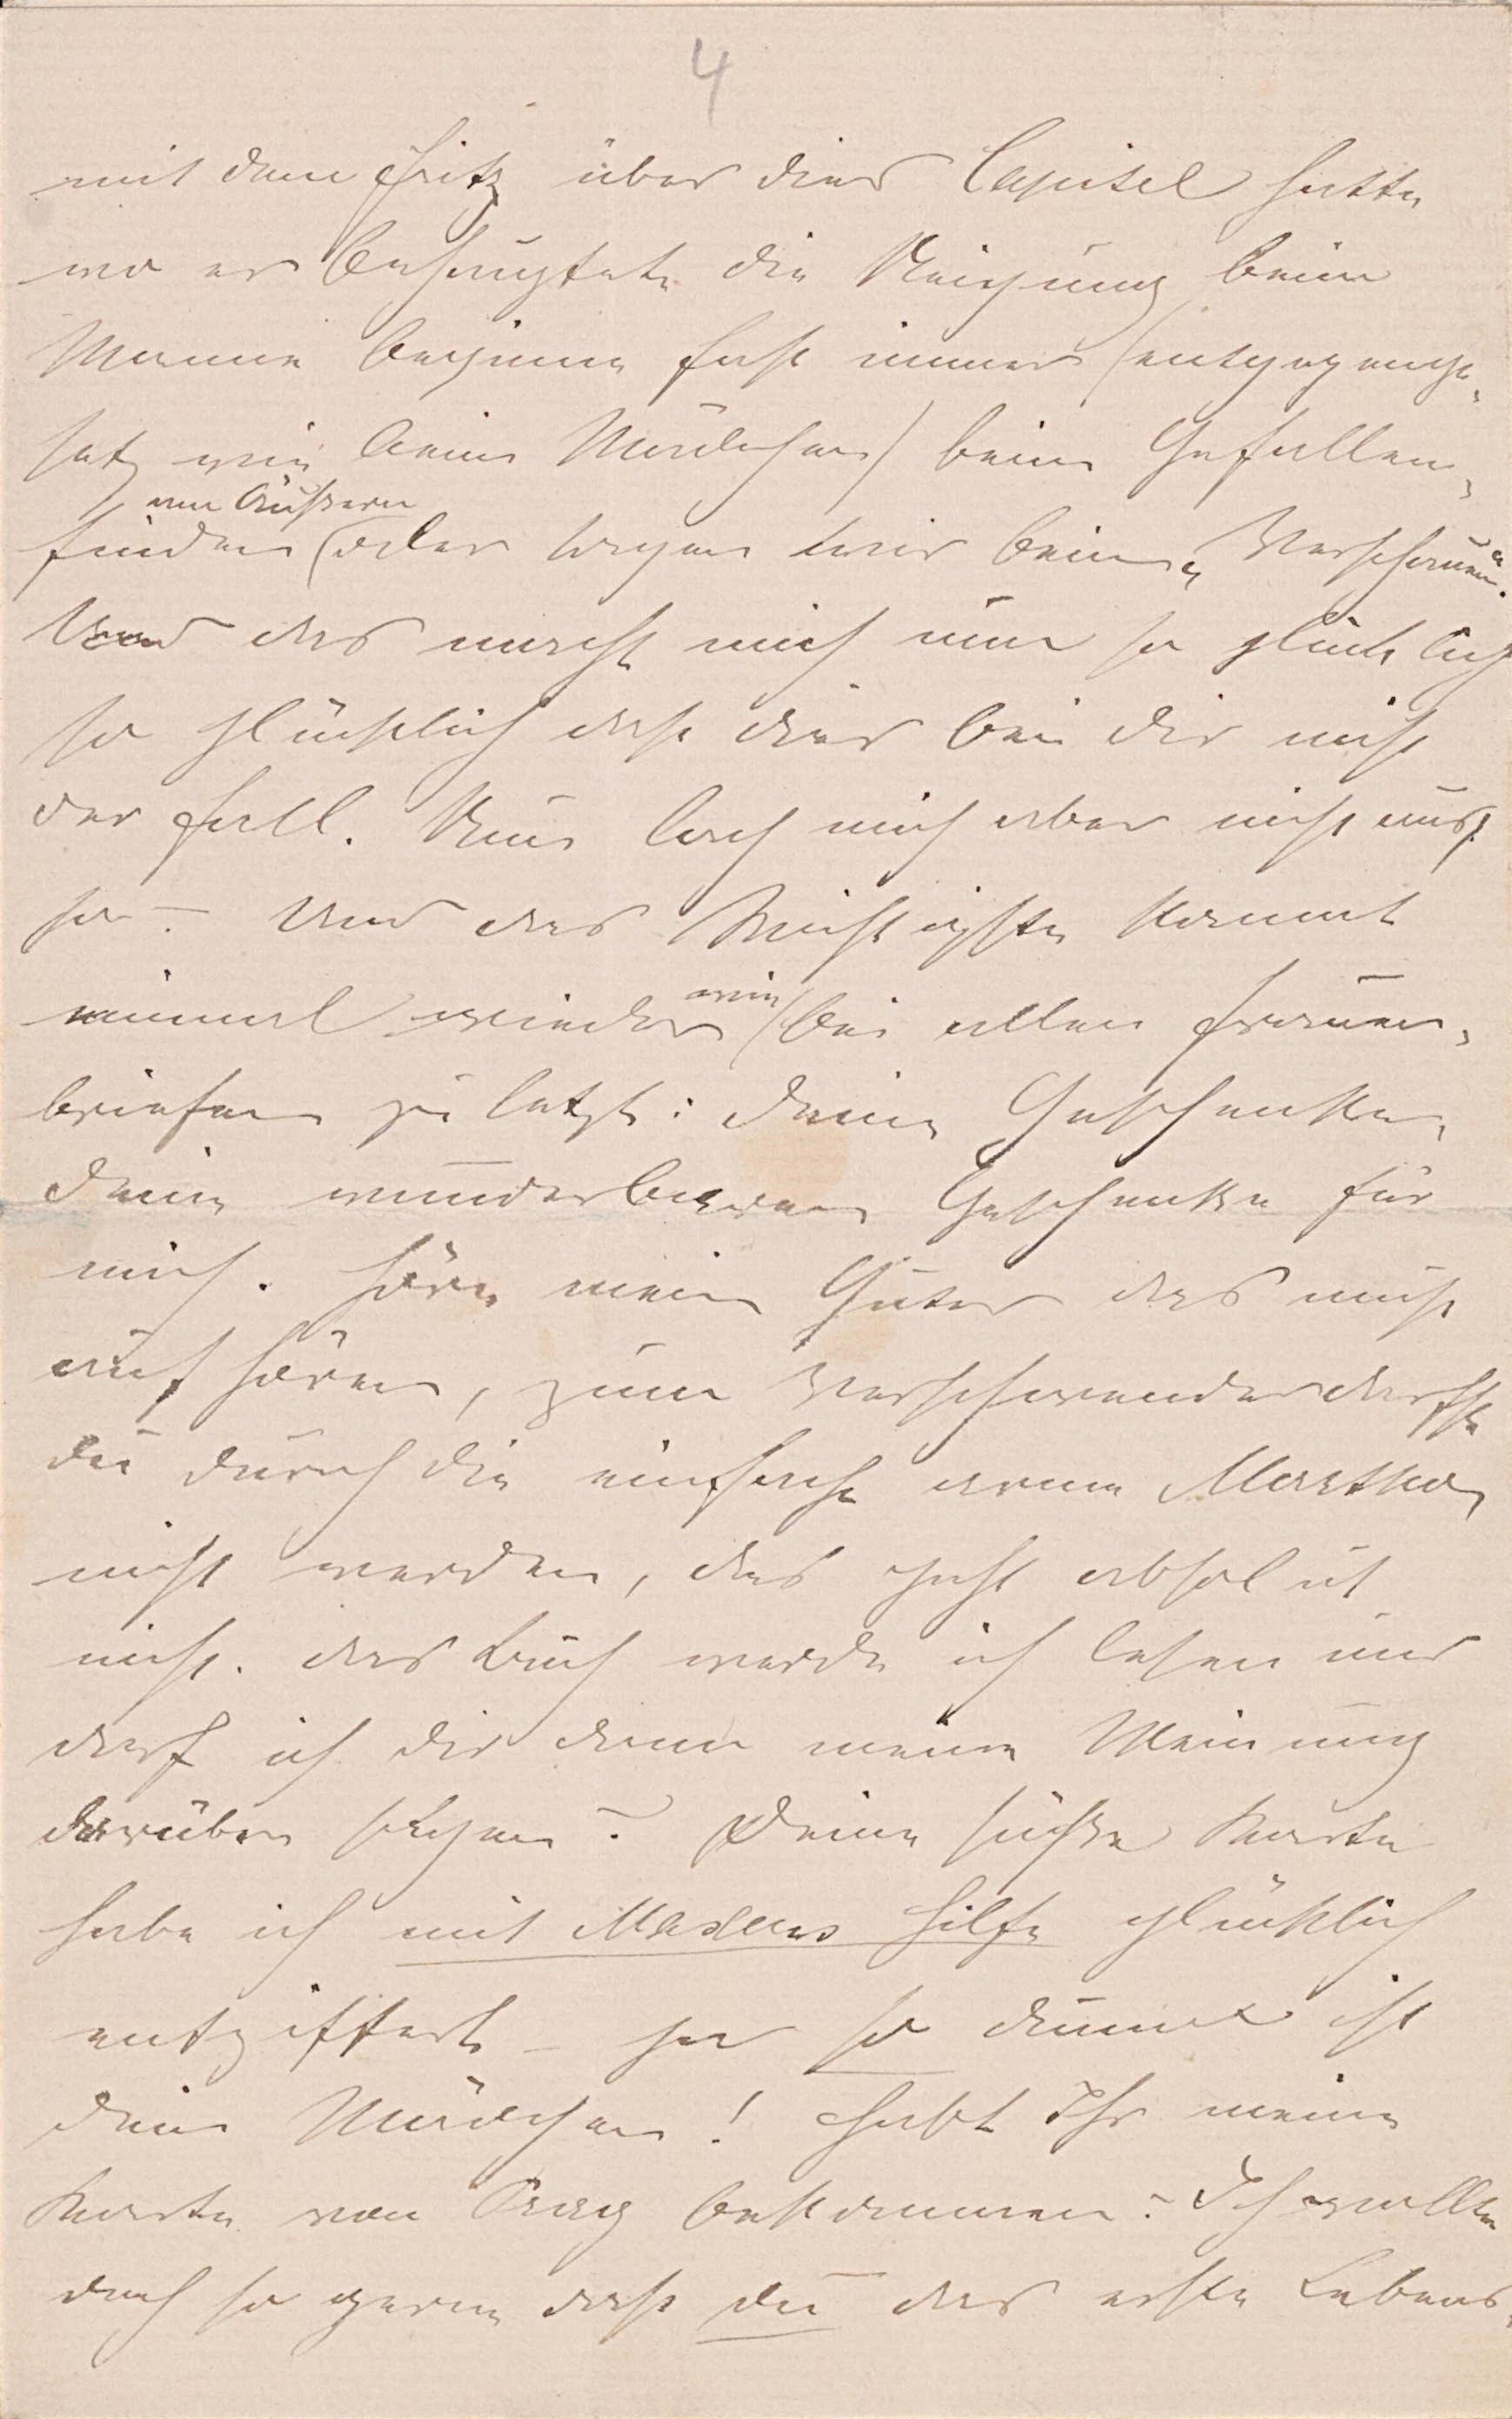 4
mit dem Fritz über dies Capitel hatte
wo er behauptete die Neigung beim
Manne beginne fast immer (entgegenge-
setzt wie beim Mädchen) beim Gefallen-
am Äußern
finden (oder sagen wir beim „Verschauen“.
Und das macht mich nun so glücklich
so glücklich dass dies bei dir nicht
der Fall. Nun lach mich aber nicht aus
ja – Und das Wichtigste kommt
einmal wieder wie bei allen Frauen-
briefen zuletzt: Deine Geschenke,
Deine wunderbaren Geschenke für
mich. Höre mein Guter das muß
aufhören, zum Verschwender darfst
du durch die einfache arme Martha
nicht werden, das geht absolut
nicht. Das Buch werde ich lesen und
darf ich dir dann meine Meinung
darüber sagen? Deine süße Karte
habe ich mit Mamas Hilfe glücklich
entziffert – ja so dumm ist
dein Mädchen! Habt Ihr meine
Karte von Prag bekommen? Ich wollte
doch so gerne dass du das erste Lebens-